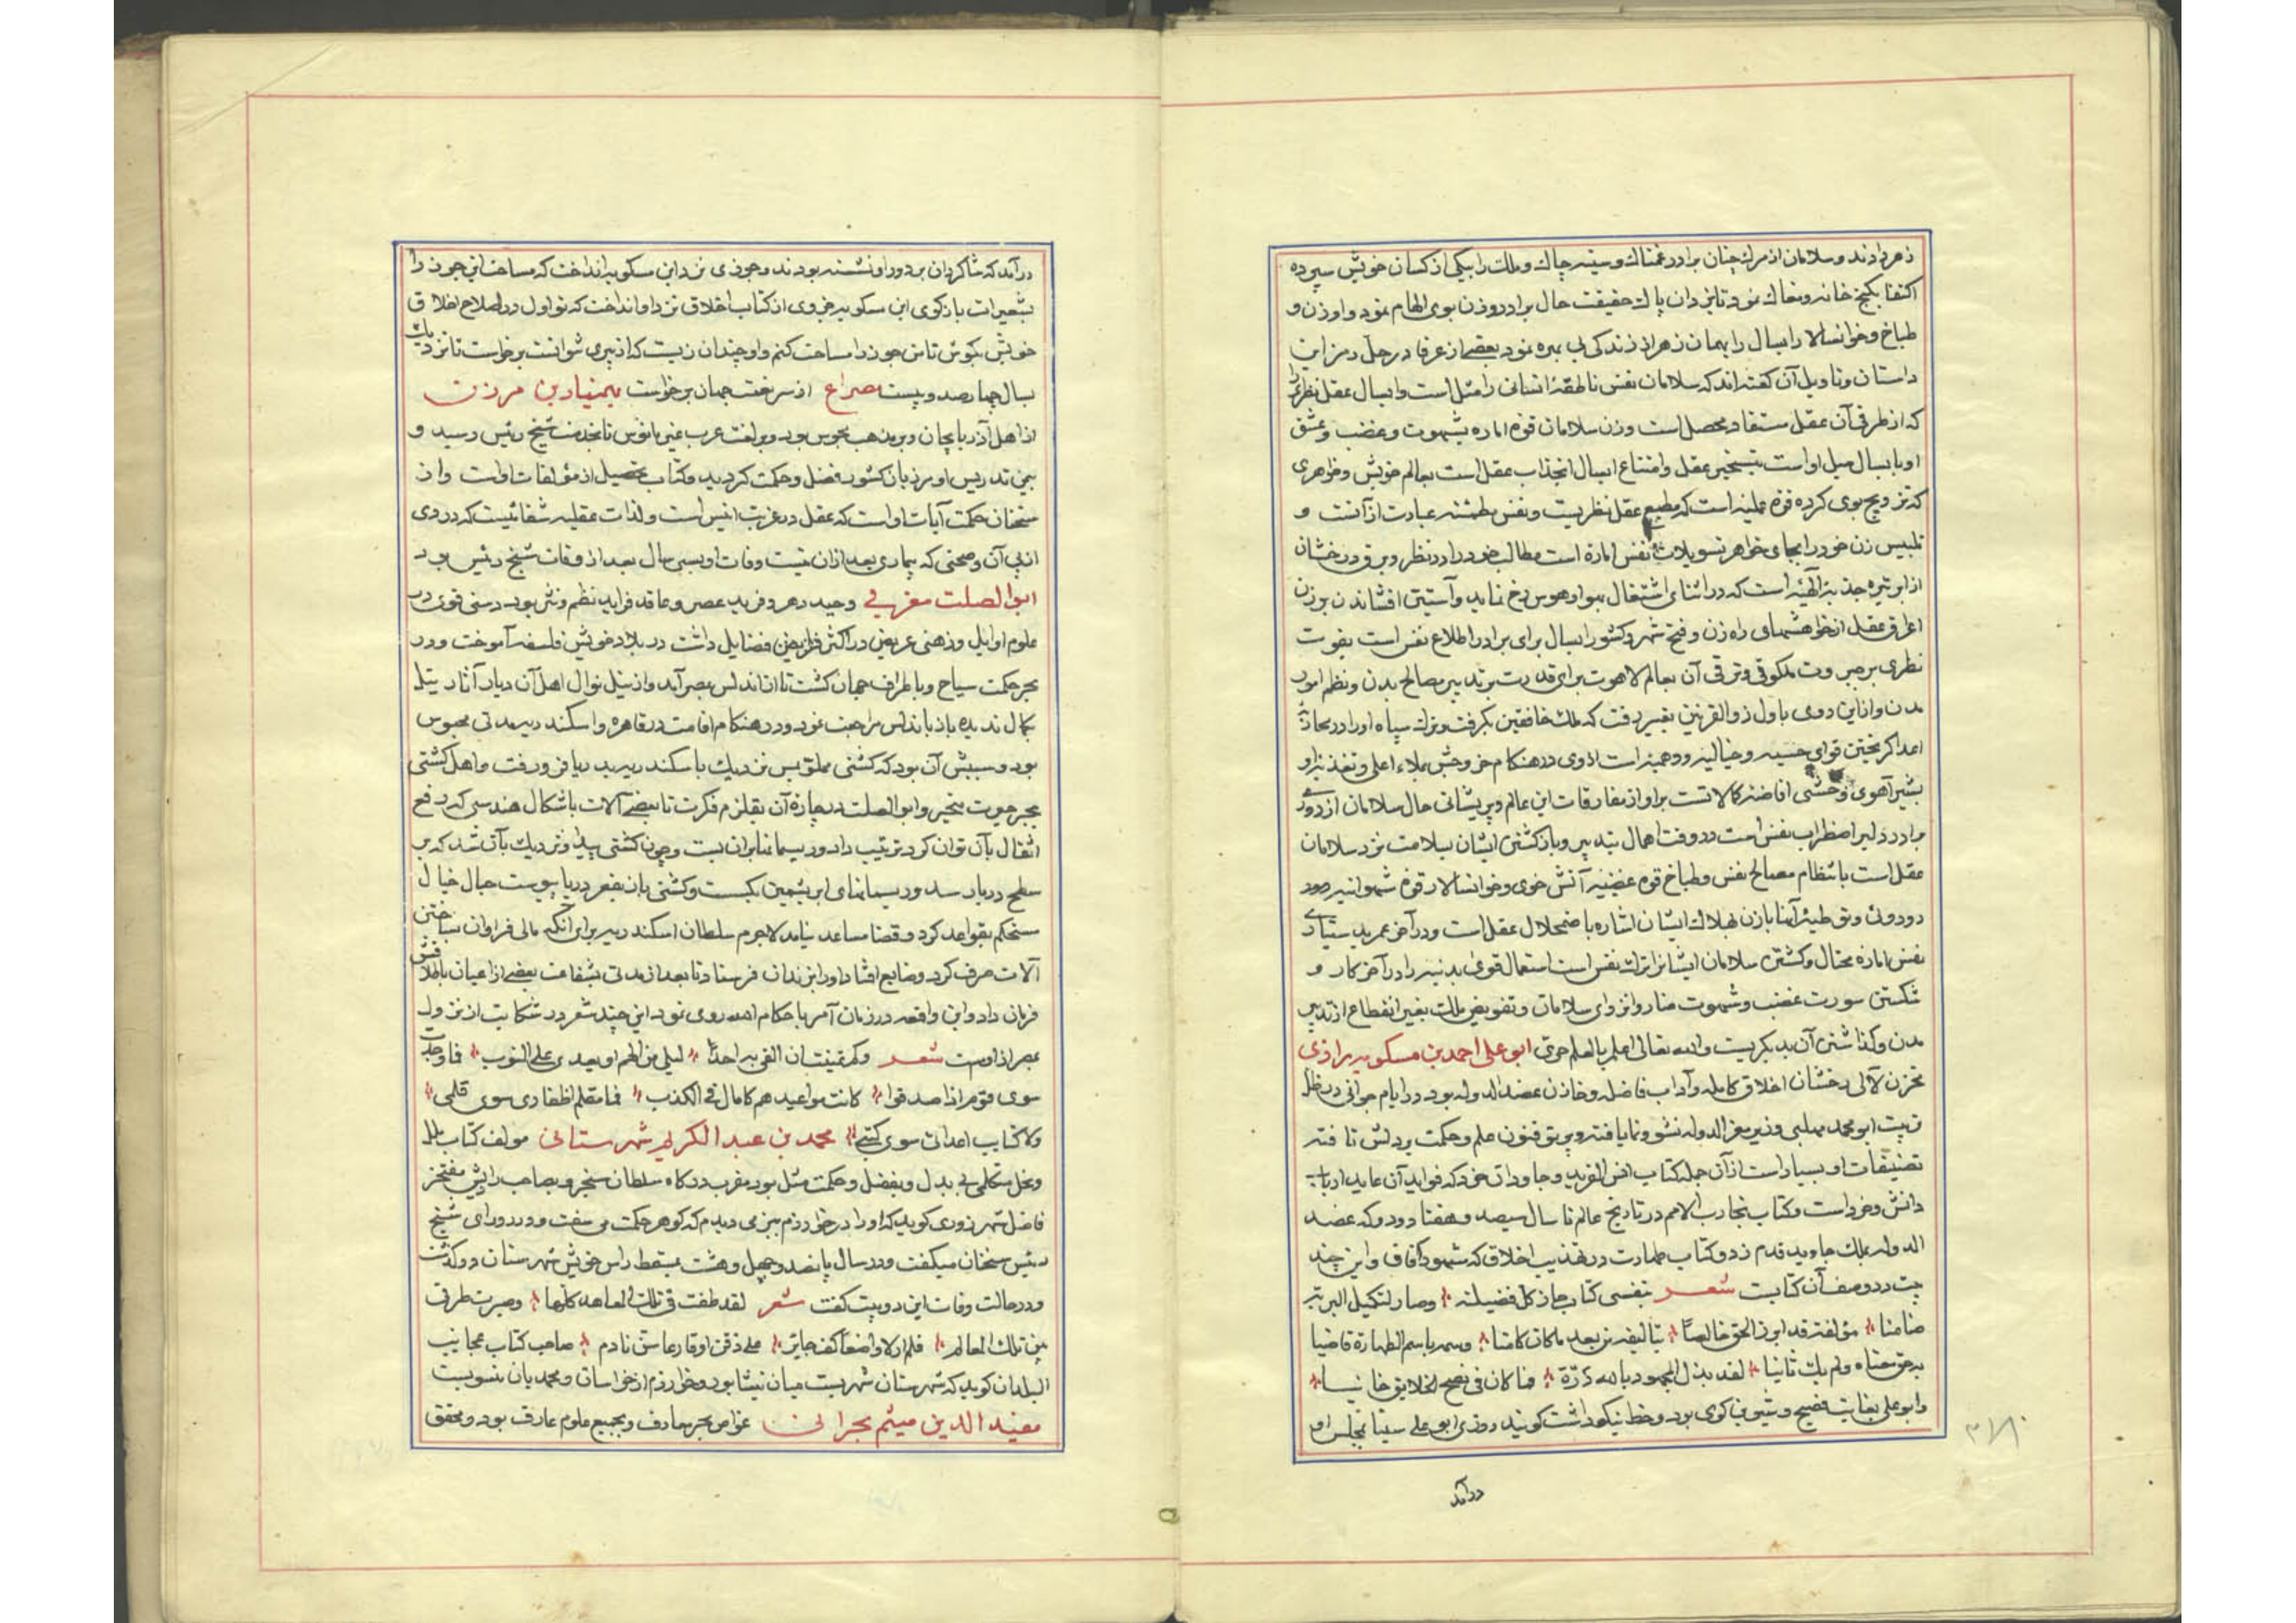 زهر دادند و سلامان از مرك چنان برادر غمناك و سینه چاك و ملك را بیكی از كسان خویش سپرده
اكتفا بكنج خانه و مغاك نمود تا یزدان پاك حقیقت حال برادر و زن بوی الهام نمود و او زن و
طباخ و خوانسالار ابسال را بهمان زهر از زندكی بی بهره نمود بعضی از عرفا در حل رمز این
داستان و تاویل آن كفته اند كه سلامان نفس ناطقهٔ انسانی را مثل است و ابسال عقل نظری را
كه از طرفی آن عقل مستفاد محصل است و زن سلامان قوه اماره بشهوت و غضب و عشق
او بابسال میل او است بتسخیر عقل و امتناع ابسال انجذاب عقل است بعالم خویش و خواهری
كه تزویج بوی كرده قوه عملیه است كه مطیع عقل نظریست و نفس مطمئنه عبارت از آنست و
تلبیس زن خود را بجای خواهر تسویلات نفس اماره است مطالب خود را در نظر و برق درخشان
از ابر تیره جذبه الهیه است كه در اثنای اشتغال بهوا و هوس رخ نماید و آستین افشاندن بر زن
اعراق عقل از خواهشهای راه زن و فتح شهر و كشور ابسال برای برادر اطلاع نفس است بقوت
نظری بر جبروت ملكوتی و ترقی آن بعالم لاهوت برای قدرت بر تدبیر مصالح بدن و نظم امور
مدن و از این روی باول ذوالقرنین تعبیر رفت كه ملك خافقین بكرفت و ترك سپاه او را در محاربهٔ
اعدا كریختن قوای حسیه و خیالیه و وهمیه است از وی در هنكام عروجش بملاء اعلی و تغذیه او
بشیر آهوی وحشی افاضه كمالاتست بر او از مفارقات این عالم و پریشانی حال سلامان از دوری
برادر دلبر اضطراب نفس است در وقت اهمال تدبیر و باز كشتن ایشان بسلامت نزد سلامان
عقل است بانتظام مصالح نفس و طباخ قوه غضبیه آتش خوی و خوانسالار قوه شهوانیه
دوروئی و توطئهٔ آنها با زن بهلاك ایشان اشاره باضمحلال عقل است و در آخر عمر
نفس اماره محتال و كشتن سلامان ایشانرا ترك نفس است استعمال قوی بدنیه را در آخر كار و
شكستن سورت غضب و شهوت و انزوای سلامان و تفویض ملك بغیر انقطاع از تدبیر
مدن و كذاشتن آن بدیكریست والله تعالی اعلم بالعلم حق ابو علی احمد بن مسكویه رازی
مخزن لآلی رخشان اخلاق كامله و آداب فاضله و خازن عضد الدوله بود در ایام جوانی در ظل
تربیت ابو محمد مهلبی وزیر معز الدوله نشو و نما یافته و پرتو فنون علم و حكمت بر دلش تافته
تصنیفات او بسیار است از آن جمله كتاب انس الفرید و جاودان خرد كه فواید آن عاید ارباب
دانش و خرد است و كتاب تجارب الامم در تاریخ عالم تا سال سیصد و هفتاد و دو كه عضد
الدوله بملك جاوید قدم زد و كتاب طهارت در تهذیب اخلاق كه مشهور آفاق و این چند
بیت در وصف آن كتابست شعر بنفسی كتاب حاز كل فضیلة وصار لتكمیل البریة
ضامنا مؤلفه قد ابرز الحق خالصًا بتالیفه من بعد ما كان كامنا وسمه باسم الطهارة قاضیا
به حق معناه ولم یك ثانیا لقد بذل المجهود بالله دره فما كان فی نصح الخلایق خانیا
و ابو علی بغایت فصیح و شیرین كوی بود و خط نیكو داشت كویند روزی ابو علی سینا بمجلس او
درآمد
۳۷۸
درآمد كه شاكردان بر دور او نشسته بودند و جوزی نزد ابن مسكویه انداخت كه مساحت این جوز را
بشعیرات بازكوی ابن مسكویه جزوی از كتاب اخلاق نزد او انداخت كه تو اول در اصلاح اخلاق
خویش بكوش تا من جوز را مساحت كنم و او چندان زیست كه از پیری نتوانست برخواست تا نزدیك
بسال چهارصد و بیست مصراع از سر تخت جهان برخواست بهمنیار بن مرزبان
از اهل آذربایجان و بر مذهب مجوس بود و بلغت عرب غیر مانوس تا بخدمت شیخ رئیس رسید و
بیمن تدریس او مرزبان كشور فضل و حكمت كردید و كتاب تحصیل از مؤلفات او است و از
سخنان حكمت آیات او است كه عقل در غربت انیس است و لذات عقلیه شفائیست كه دردی
از پی آن و صحتی كه بیماری بعد از آن نیست وفات او بسی سال بعد از وفات شیخ رئیس بود
ابو الصلت مغربی وحید دهر و فرید عصر و عاقد فراید نظم و نثر بود دستی قوی در
علوم اوایل و ذهنی عریض در اكثر فرایض فضایل داشت در بلاد خویش فلسفه آموخت و در
بحر حكمت سیاح و باطراف جهان كشت تا از اندلس بمصر آید و از نیل نوال اهل آن دیار آثار نیل
كمال ندیده باز باندلس مراجعت نمود و در هنكام اقامت در قاهره و اسكندریه مدتی محبوس
بود و سببش آن بود كه كشتی مملو بس نزدیك باسكندریه بدریا فرو رفت و اهل كشتی
ببحر حیرت متحیر و ابو الصلت در چارهٔ آن بقلزم فكرت تا ببعضی آلات باشكال هندسی كه رفع
اثقال بآن توان كرد ترتیب داد و ریسمانها بر آن بست و چون كشتی پیدا و نزدیك بآن شد كه بر
سطح دریا رسد و ریسمانهای ابریشمین بكسست و كشتی باز بقعر دریا پیوست حبال خیال
مستحكم بقواعد كرد و قضا مساعد نیامد لاجرم سلطان اسكندریه برای آنكه مالی فراوان بساختن
آلات صرف كرد و ضایع افتاد او را بزندان فرستاد تا بعد از مدتی بشفاعت بعضی از اعیان باطلاقش
فرمان داد و این واقعه در زمان آمر باحكام الله روی نمود این چند شعر در شكایت از نزول
بمصر از اوست شعر وكم تمنیت ان القی به احدًا یسلی من الهم او یعدی علی النوب فما وجدت
سوی قوم اذا صدقوا كانت مواعیدهم كالمال فی الكذب فما مقلم اظفاری سوی قلمی
ولا كتایب اعدائی سوی كتبی محمد بن عبد الكریم شهرستانی مولف كتاب ملل
و نحل متكلمی بی بدل و بفضل و حكمت مثل بود مقرب دركاه سلطان سنجر و بصاحب رائیش مفتخر
فاضل شهرزوری كوید كه او را در خوارزم بمنبر میدیدم كه كوهر حكمت می سفت و در رد رای شیخ
رئیس سخنان میكفت و در سال پانصد و چهل و هشت بمسقط راس خویش شهرستان در كذشت
و در حالت وفات این دو بیت كفت شعر لقد طفت فی تلك المعاهد كلها وصیرت طرفی
بین تلك المعالم فلم ار الا واضعًا كف حایر علی ذقن او قارعا سن نادم صاحب كتاب عجایب
البلدان كوید كه شهرستان شهریست میان نیشابور و خوارزم از خراسان و محمد بآن منسوبست
مفید الدین میثم بحرانی غواص بحر معارف و بجمیع علوم عارف بود و محقق